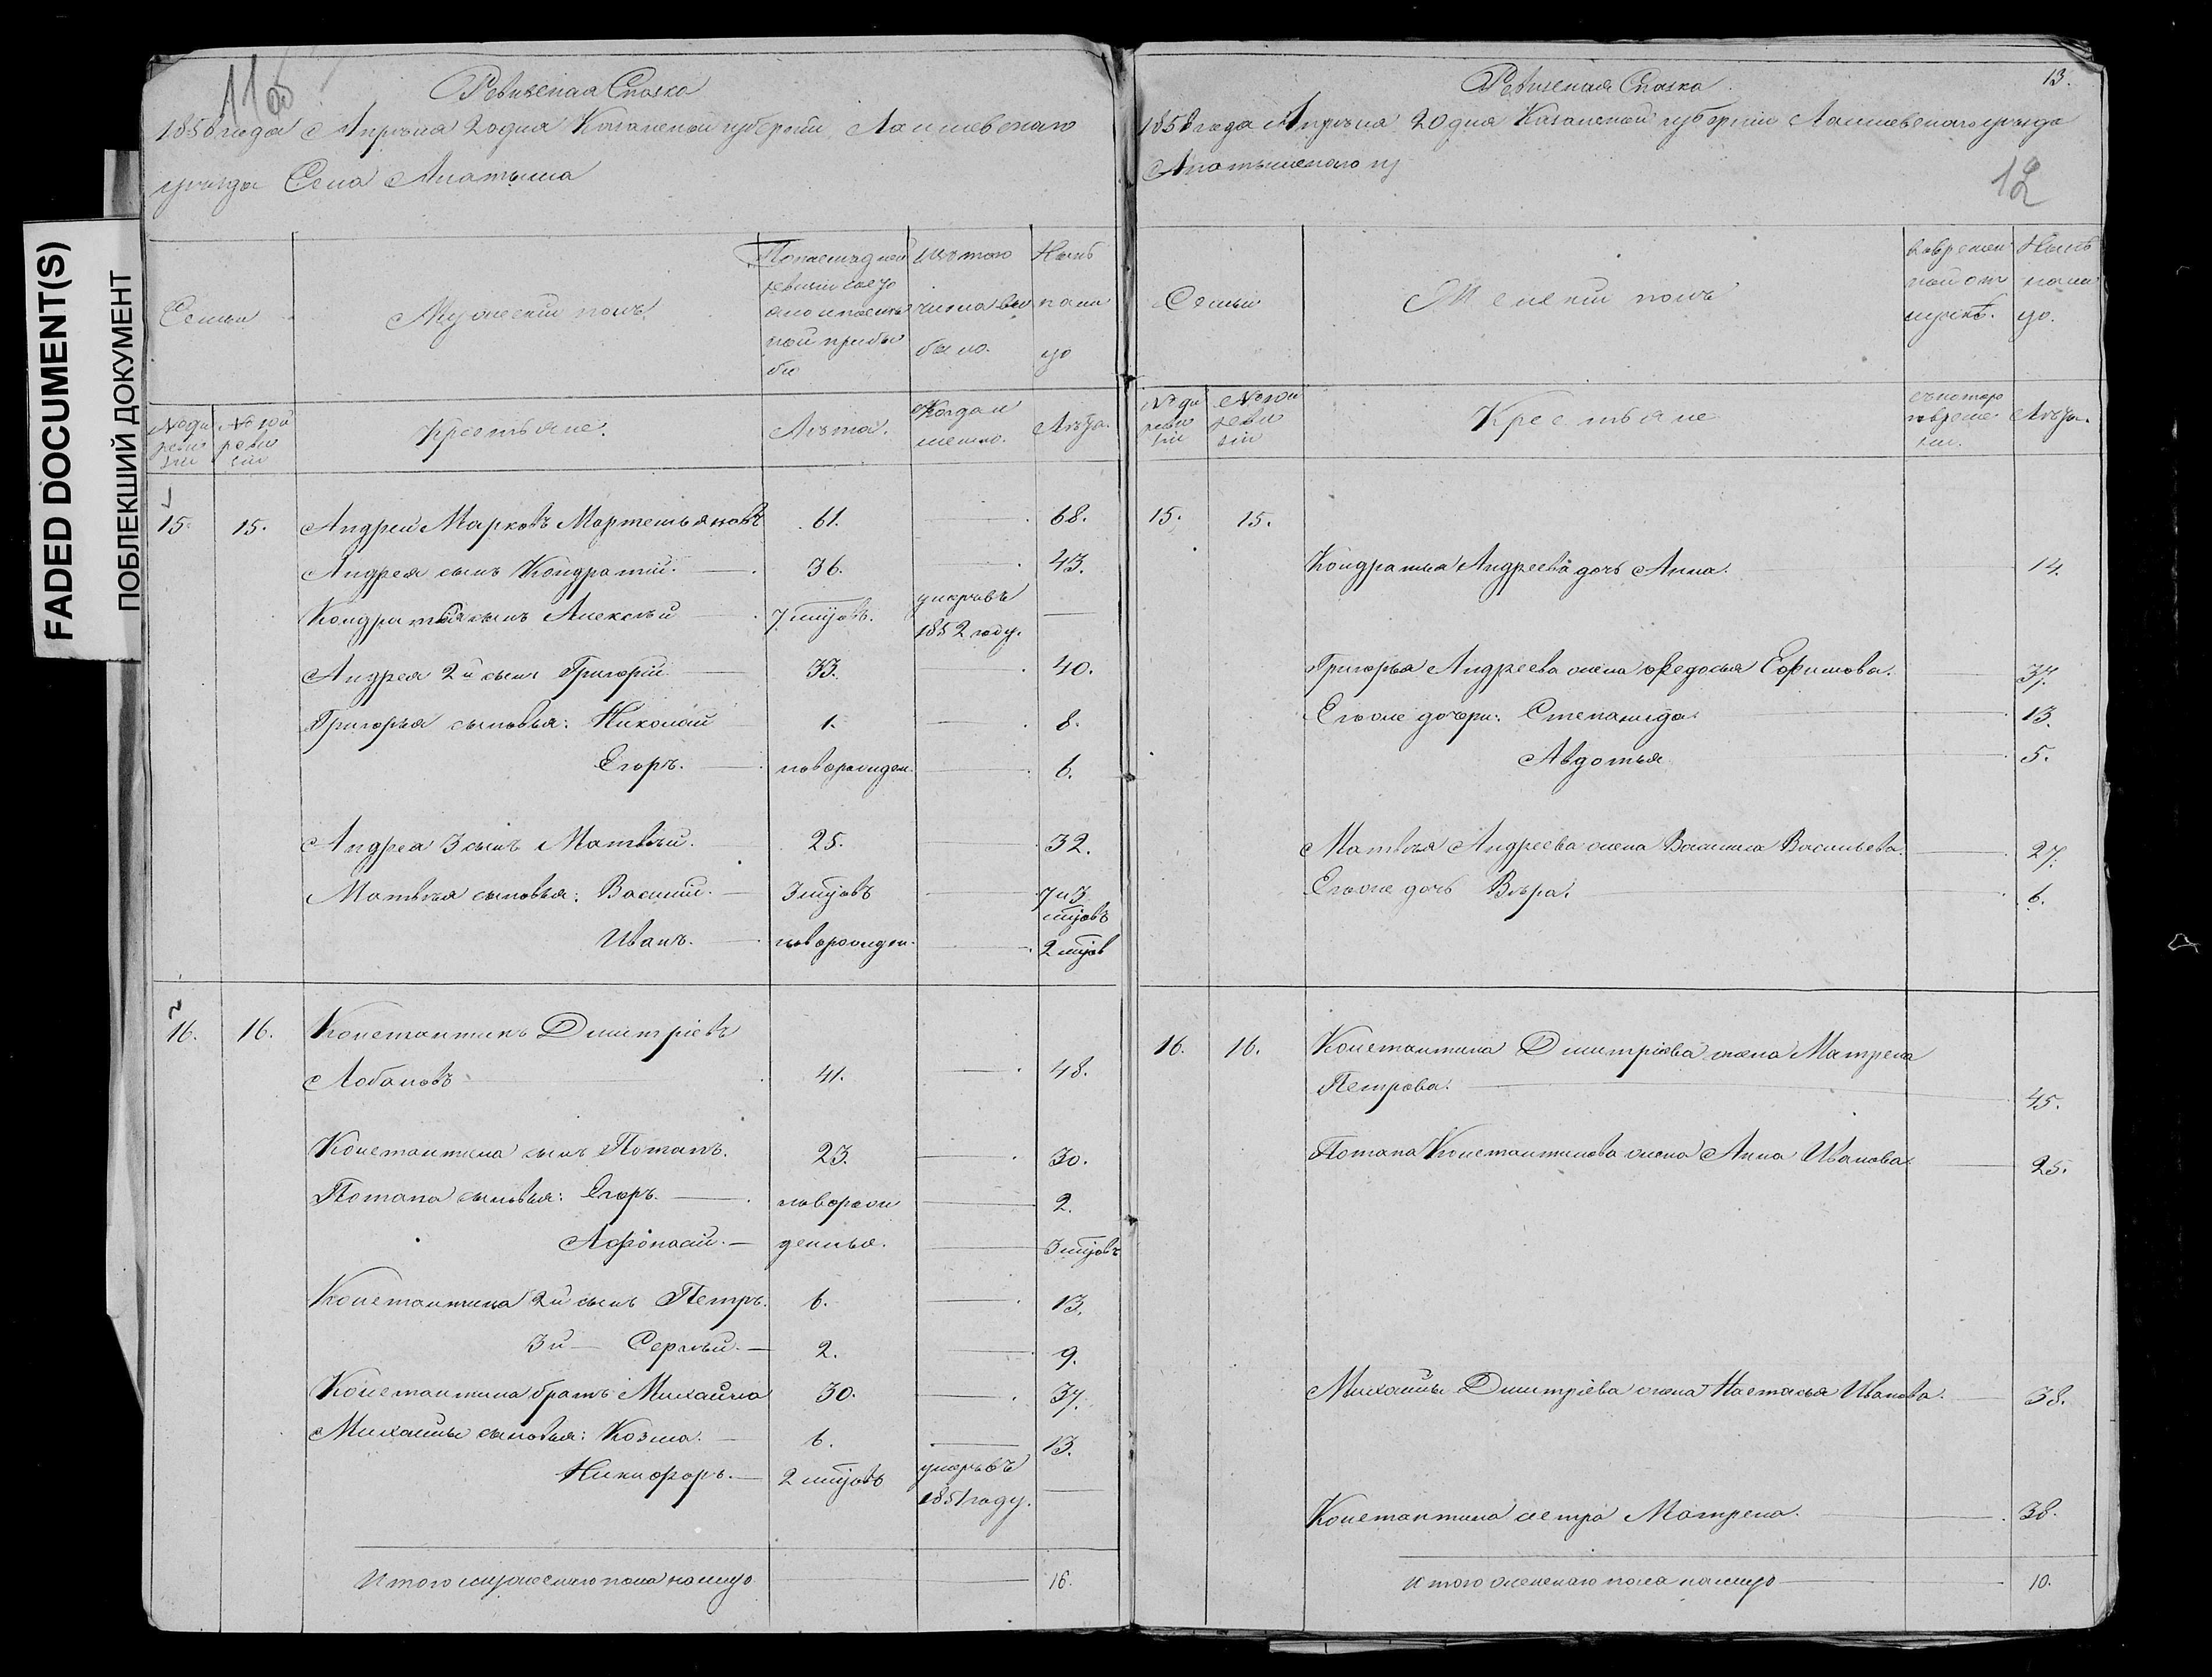 FADED DOCUMENT(S)
ПОБЛЕКШИЙ ДОКУМЕНТ
11об
Ревизская Сказка
1858 года Апрѣля 20 дня Казанской губерніи Лаишевскаго
уѣзда Села Анатыша
Семьи
Мужескій полъ
По последней
ревизіи состо
яло и после
ной прибы
ло
изъ того
числа вы
было.
Нынѣ
на ли
цо
№ 9й
ревизіи
№ 10й
ревизіи
Крестьяне.
Лѣта.
Когда и
менно.
Лѣта.
15. 15. Андрей Марковъ Мартемьяновъ 61. 68.
Андрея сынъ Кондратій. 36. 43.
Кондратія сынъ Алексѣй 7 мцовъ. умеръ въ
1852 году.
Андрея 2й сынъ Григорій 33. 40.
Григорья сыновья: Николай 1. 8.
Егоръ. новорожден. 6.
Андрея 3 сынъ Матвѣй. 25. 32.
Матвѣя сыновья: Василій. 3 мцовъ 7 и 3
мцовъ
Иванъ. новорожден. 2 мцов
16. 16. Константинъ Дмитріевъ
Лобановъ 41. 48.
Константина сынъ Потапъ. 23. 30.
Потапа сыновья: Егоръ. новорож 2.
Афонасій. денные. 3 мцовъ
Константина 2й сынъ Петръ. 6. 13.
3й Сергѣй. 2. 9.
Константина братъ Михайла 30. 37.
Михайлы сыновья: Козма. 6. 13.
Никифоръ. 2 мцовъ умеръ въ
1851 году.
Итого мужескаго пола на лицо 16.
13.
Ревизская Сказка
1858 года Апрѣля 20 дня Казанской губерніи Лаишевскаго уѣзда
Анатышскаго
12
Семьи
Женскій полъ
во времен
ной от
лучкѣ.
Нынѣ
на ли
цо.
№ 9й
ревизіи
№ 10й
ревизіи
Крестьяне
Лѣта.
15. 15.
Кондратья Андреева дочь Анна. 14.
Григорья Андреева жена Федосья Ефимова. 37.
Его же дочери: Степанида. 13.
Авдотья 5.
Матвѣя Андреева жена Василиса Васильева. 27.
Его же дочь Вѣра. 6.
16. 16. Константина Дмитріева жена Матрена
Петрова. 45.
Потапа Константинова жена Анна Иванова. 25.
Михайлы Дмитріева жена Настасья Иванова. 38.
Константина сестра Матрена. 38.
Итого женскаго пола на лицо 10.